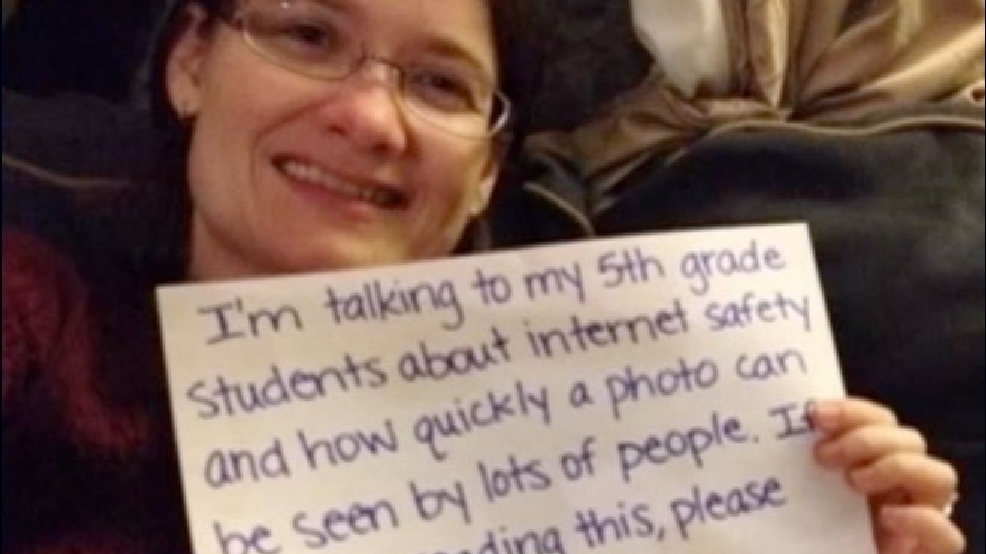 I'm talking to my 5th grade
students about internet safety
and how quickly a photo can
be seen by lots of people. If
this, please